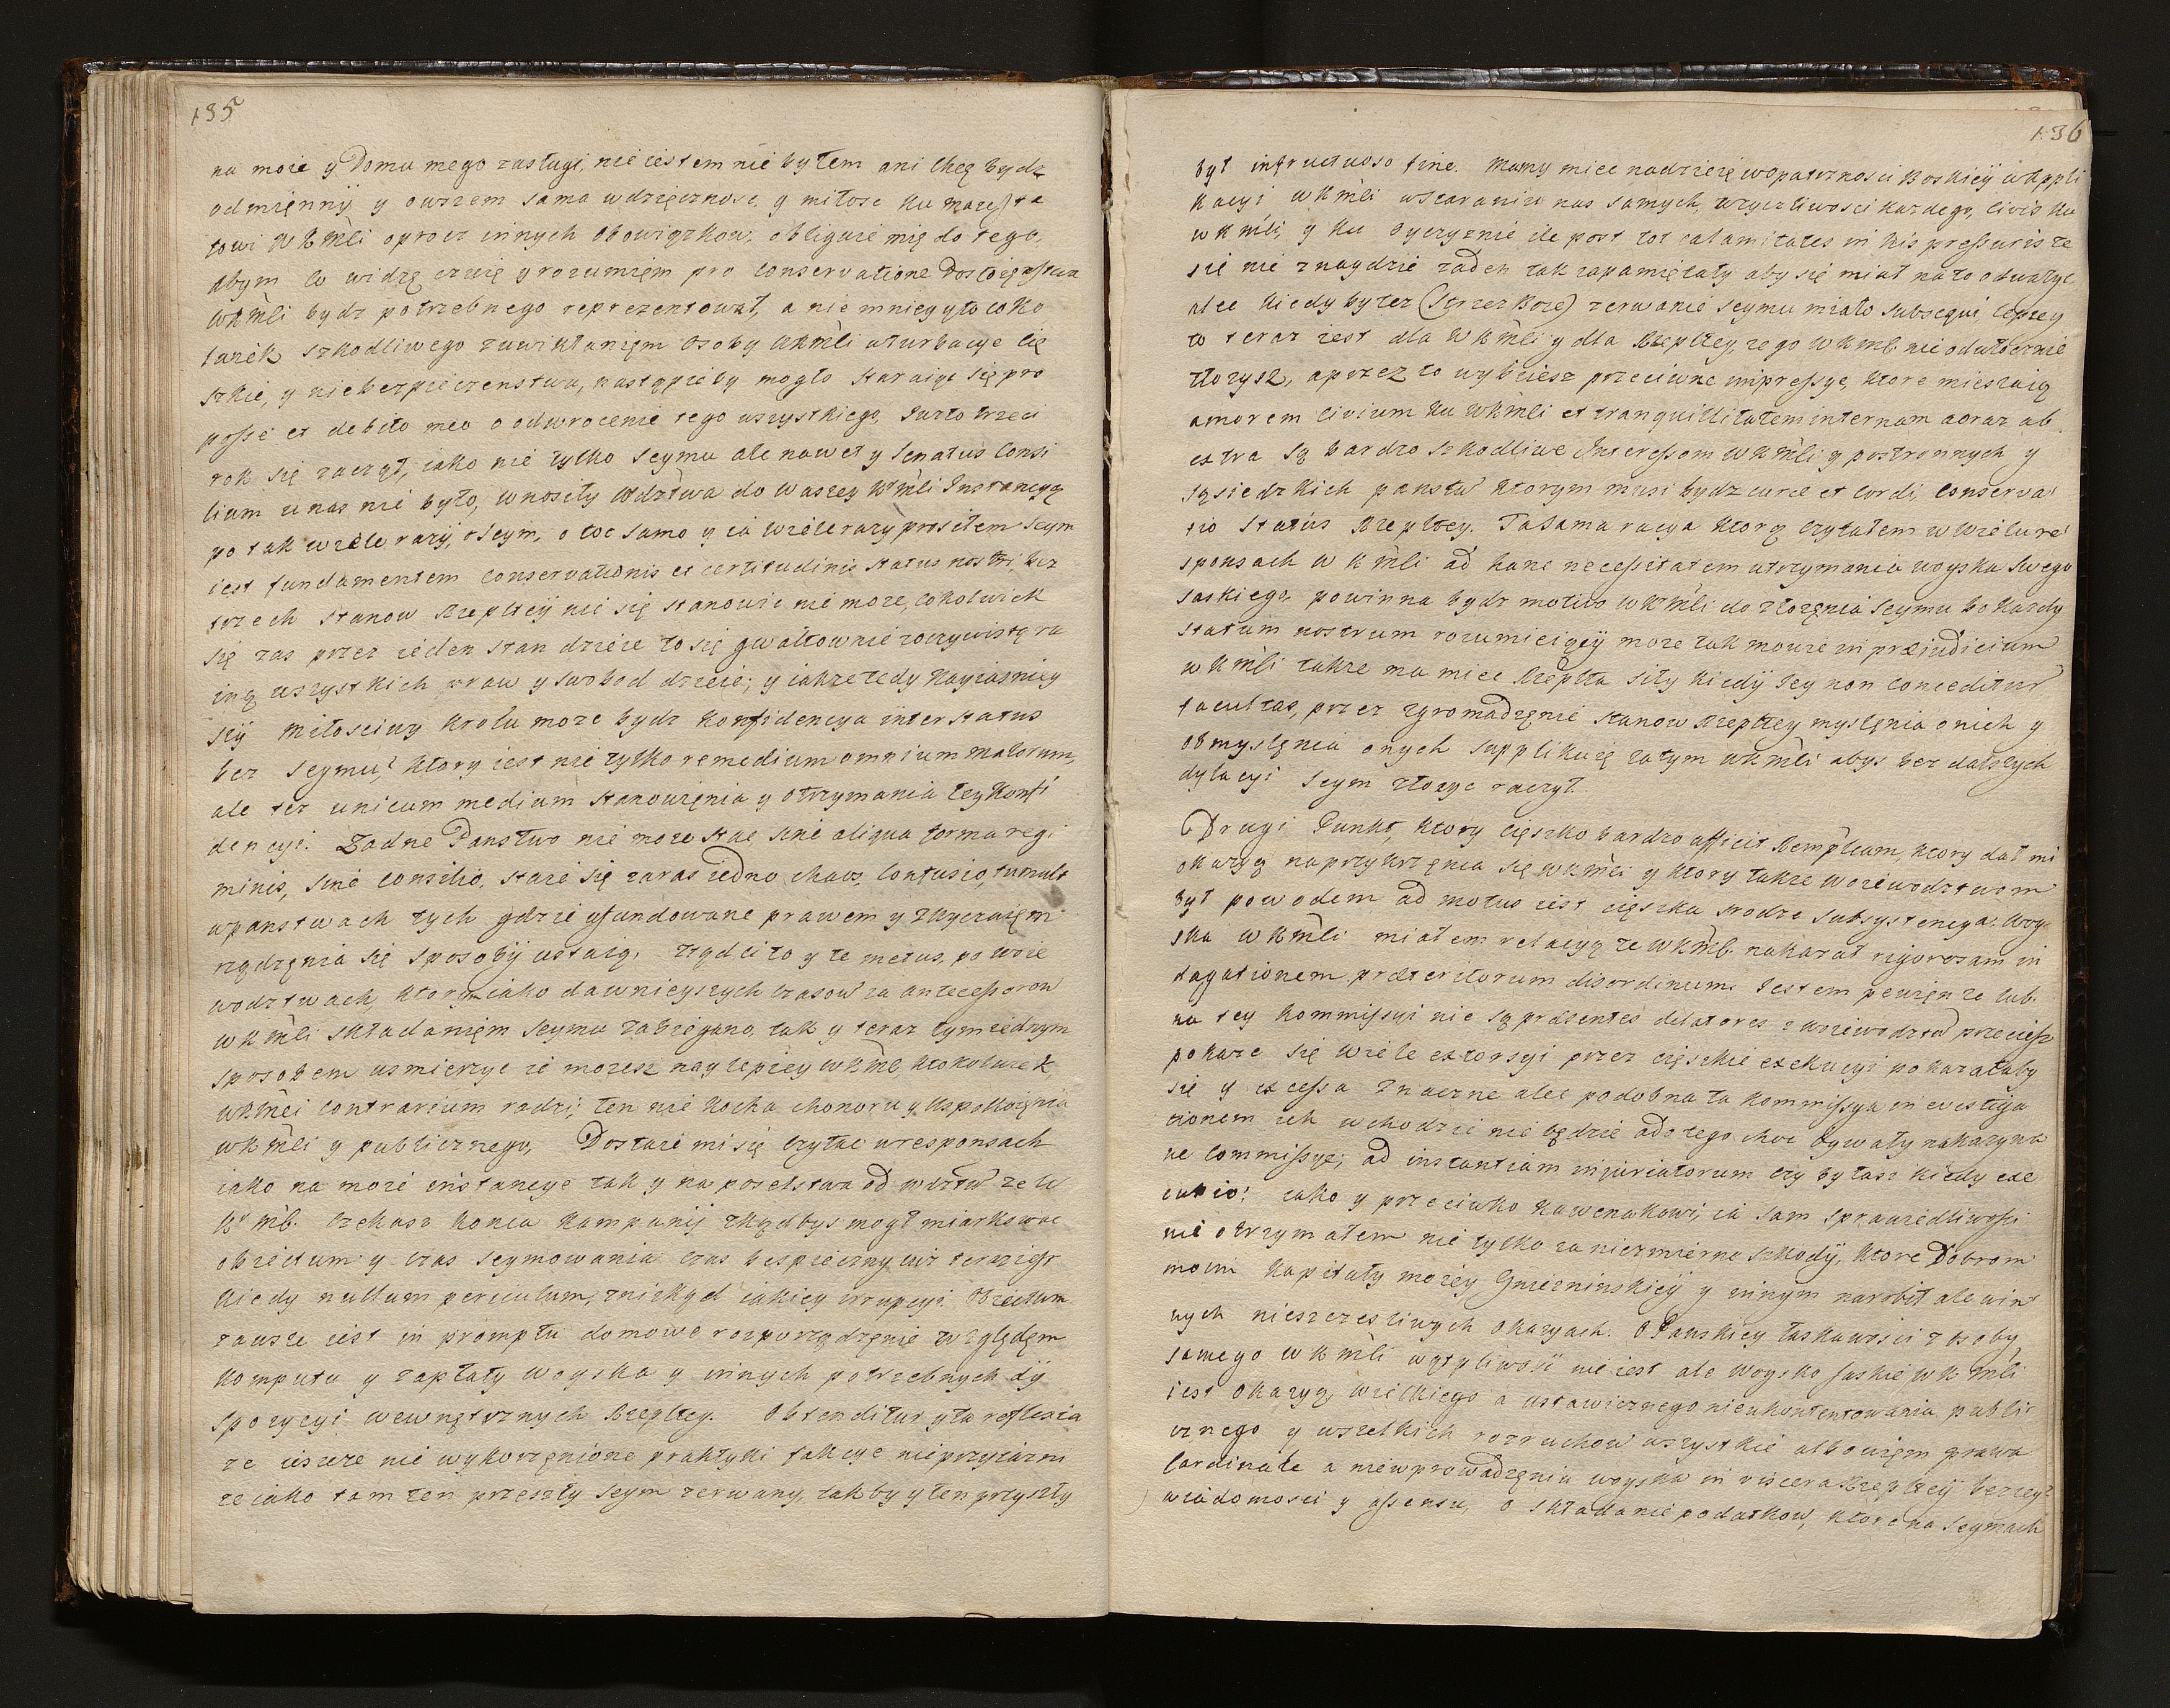 135
na moie y Domu mego zasługi, nie iestem nie byłem ani chcę bydz
odmięnnÿ y owszem sama wdzięcznosc y miłosc ku maiesta
towi WKMsci oprocz innych obowiązkow, obliguie mię do tego,
abym co widzę czuię y rozumięm pro conservatione Dostoięnstwa
WKMsci bydz potrzebnego reprezentował, a nie mniey y to coko
lwiek szkodliwego z uwikłanięm osoby WKMsci
szkie, y niebezpieczenstwa, nastąpic by mogło staraiąc się pro
posse et debito meo o odwrocenie tego wszystkiego, Iuz to trzeci
rok się zaczął, iako nie tylko seymu ale nawet y Senatus Consi
lium u nas nie było, wnosiły Wdztwa do Waszey KMsci Instancyą
po tak wiele razÿ, o Seym, o toc samo y ia wiele razy prosiłem Seym
iest fundamentem conservationis et certitudinis status nostri, bez
trzech stanow Rzeplteÿ nic się stanowic nie moze, cokolwiek
się zas przez ieden stan dzieie to się gwałtownie z oczywistą ru
iną wszystkich praw y swobod dzieie; y iakze tedy Nayiasniey
szÿ Miłosciwy Krolu moze bydz konfidencya inter status
bez Seymu? ktory iest nie tylko remedium omnium malorum,
ale tez unicum medium stanowięnia y otrzymania tey konfi
dencyi. Zadne Panstwo nie moze stac sine aliqua forma regi
minis, sine consilio, staie się zaraz iedno chaos, confusio, tumult
w panstwach tych gdzie ufundowane prawem y zwyczaięm
rządzęnia się sposobÿ ustaią. Ztąd ci to y te metus, po woie
wodztwach, ktorym iako dawnieyszych czasow za antecessorow
WKMsci składanięm Seymu zabiegano, tak y teraz tym iednym
sposobem usmierzyc ie mozesz naylepiey WKMsc, ktokolwiek
WKMsci contrarium radzi, ten nie kocha chonoru y uspokoięnia
WKMsci y publicznego, Dostaie mi się czytac w responsach
iako na moie instancye tak y na poselstwa od Wdztw ze W
KMsc. czekasz konca kampanÿ zkąd bys mogł miarkowac
obiectum y czas seymowania czas bespieczny iuz teraz iest
kiedy nullum periculum, znikąd iakiey irrupcyi. Obiectum
zawsze iest in promptu domowe rozporządzęnie względęm
komputu y zapłaty woyska y innych potrzebnych dÿ
spozycyi wewnętrznych Rzepltey. Obtenditur y ta reflexia
ze ieszcze nie wykorzęnione praktyki fakcye nieprzyiazni
ze iako tam ten przeszły Seym zerwany, tak by y ten przyszły
136
był infructuoso fine. Mamy miec nadzieię w opatrznosci Boskieÿ w appli
kacyi WKMsci w staraniu nas samych, w zyczliwosci kazdego civis ku
WKMsci, y ku oyczyznie ile post tot calamitates in his pressuris ze
się nie znaydzie zaden tak zapamiętały aby się miał na to odwazyc
alec kiedy by tez (Strzez Boze) zerwanie seymu miało subsequi, lepiey
to teraz iest dla WKMsci y dla Rzepltey, ze go WKMsc. nieodwłocznie
złozysz, a przez to wybiiesz przeciwne impressye, ktore mieszaią
amorem civium ku WKMsci et tranquillitatem internam a oraz ab
extra są bardzo szkodliwe Interessom WKMsci y postronnych y
sąsiedzkich panstw ktorym musi bydz curae et cordi, conserva
tio status Rzepltey. Ta sama racya ktorą czytałem w kielu re
sponsach WKMsci ad hanc necessitatem utrzymania woyska Swego
saskiego, powinna bydz motivo WKMsci do złozęnia Seymu bo kazdy
statum nostrum rozumieiącÿ moze tak mowic in praeiudicium
WKMsci iakze ma miec Rzeplta siły kiedÿ Jey non conceditur
facultas, przez zgromadzęnie stanow Rzepltey myslęnia o nich y
obmyslęnia onych supplikuię zatym WKMsci abys bez dalszych
dylacyi Seym złozyc raczył.
Drugi Punkt, ktory cięszko bardzo afficit Rempubcam, ktory dał mi
okazyą naprzykrzęnia się WKMsci y ktory takze woiewodztwom
był powodem ad motus iest cięszka srodze subsystencya woy
ska WKMsci miałem relacyą ze WKMsc. nakazał rigorosam in
dagationem praeteritorum disordinum. Iestem pewięn ze lub.
na tey kommissyi nie są praesentes delatores z woiewodztw przeciesz
pokaze się wiele extorsyi przez cięszkie exekucyi pokazałyby
się y excessa znaczne alec podobna ta kommissya in investiga
tionem ich wchodzic nie będzie ad tego choc bywały nakazywa
ne commissye; ad instantiam iniuriatorum czy była kiedy exe
cutio? iako y przeciwko Kawenakowi, ia sam sprawiedliwosci
nie otrzymałem nie tylko za niezmierne szkodÿ, ktore Dobrom
moim kapituły moiey Gnieznienskieÿ y innym narobił ale w in
nych nieszczesliwych okazyach. O Panskiey łaskawosci z osoby
samego WKMsci wątpliwosc nie iest ale woysko saskie WKMsci
iest okazyą wielkiego a ustawicznego nieukontentowania publi
cznego y wszelkich rozruchow wszystkie albowięm prawa
Cardinale a niewprowadzęnia woyska in viscera Rzepltey bez iey
wiadomosci y assensu, o składanie podatkow, ktore na Seymach